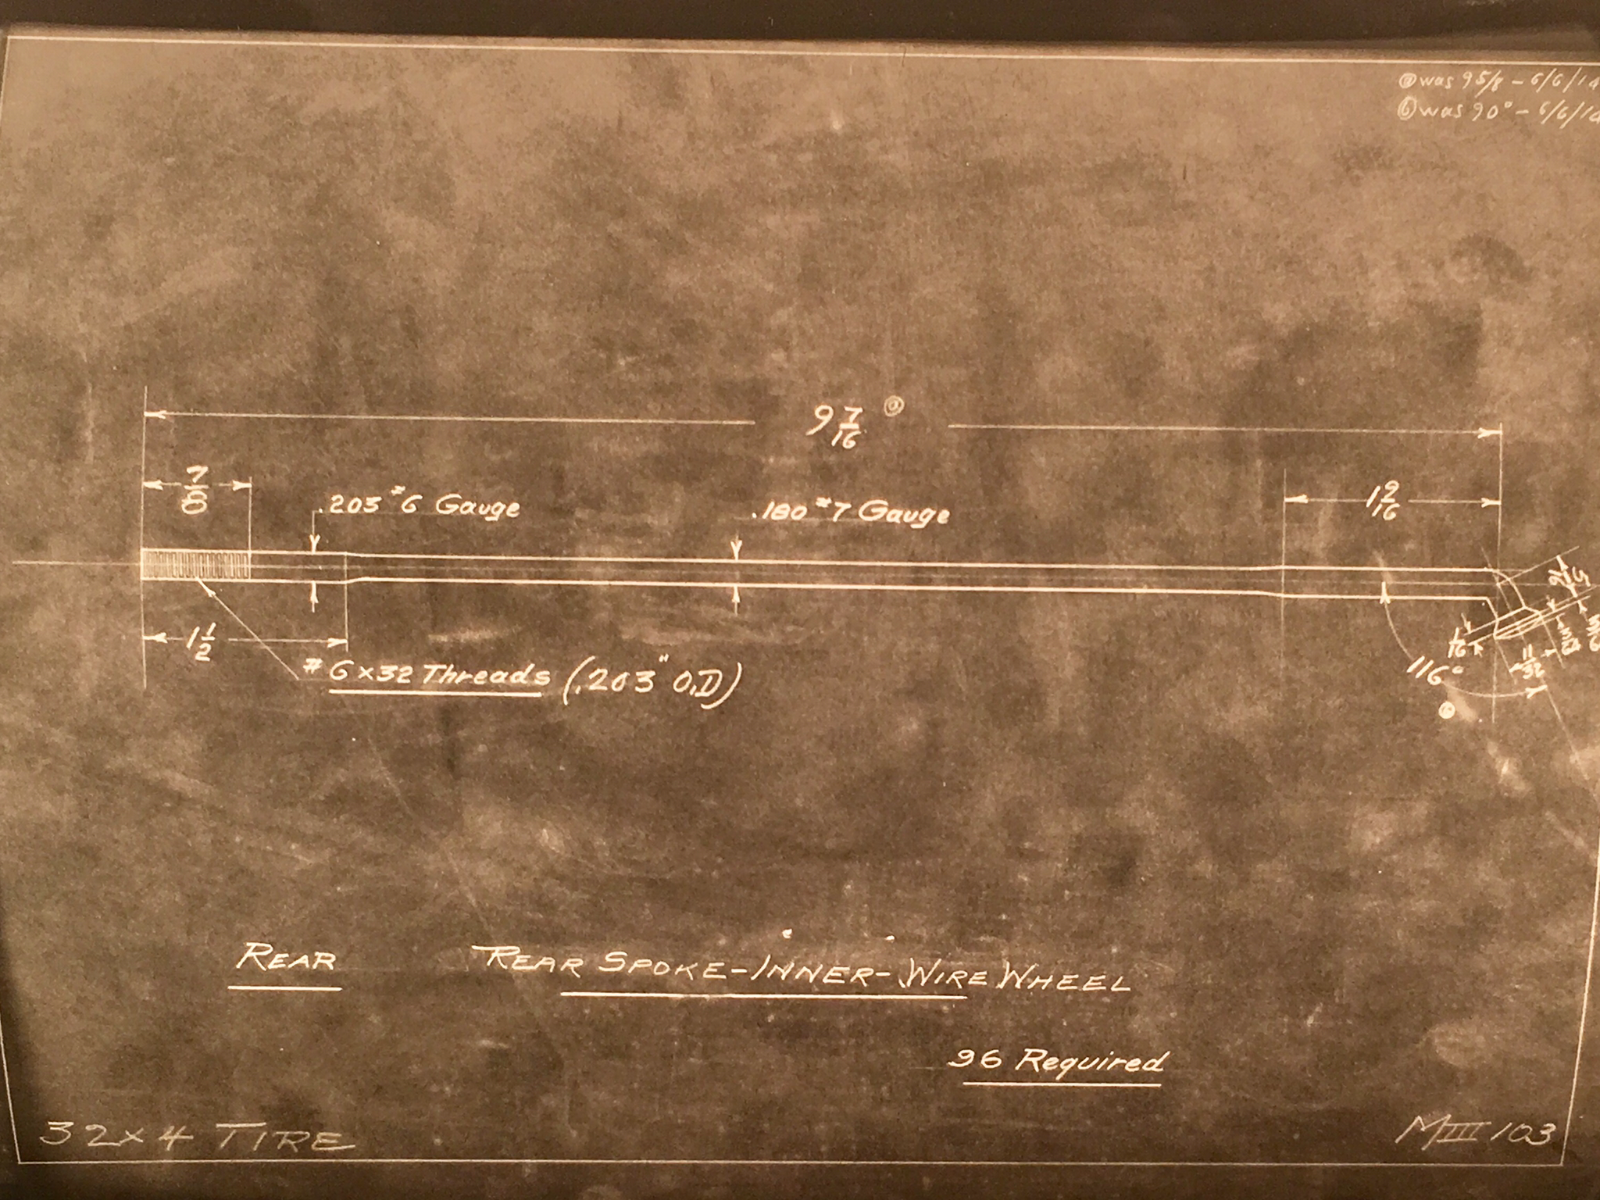 ⓐ was 9 5/8 - 6/6/14
ⓑ was 90° - 6/6/14
9 7/16 ⓐ
7/8
.203 #6 Gauge
.180 #7 Gauge
1 9/16
1 1/2
#6x32 Threads (.203" O.D)
1/16
11/32
116°
ⓑ
REAR
REAR SPOKE-INNER-WIRE WHEEL
96 Required
32x4 TIRE
MIII 103